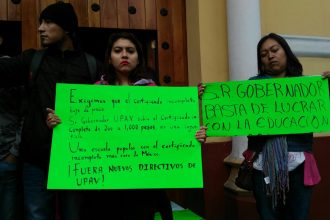 Exigimos que el certificado incompleto
baje de precio
Sr Gobernador UPAV
pesos es una
Una escuela popular con el certificado
incompleto mas caro de México
¡FUERA NUEVOS DIRECTIVOS DE
UPAV!
SR GOBERNADOR
BASTA DE LUCRAR
CON LA EDUCACIÓN